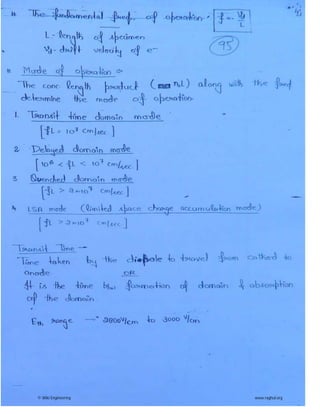 The fundamental freq. of operation. f = Vd/L
L - length of specimen
Vd - drift velocity of e-
95
Mode of operation
The conc length product (n.L) along with the freq
determine the mode of operation.
1. Transit time domain mode
[fL = 10⁷ cm/sec]
2. Delayed domain mode
[10⁶ < fL < 10⁷ cm/sec]
3 Quenched domain mode
[fL > 2×10⁷ cm/sec]
4 LSA mode (Limited space charge accumulation mode)
[fL > 2×10⁷ cm/sec]
Transit Time
Time taken by the dipole to travel from cathod to
anode. OR
It is the time b/w formation of domain & absorption
of the domain
Eth range 2800V/cm to 3000 V/cm
© Wiki Engineering www.raghul.org